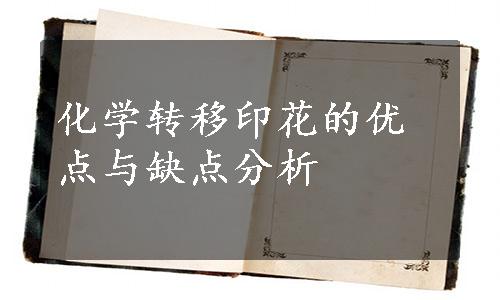 化学转移印花的优
点与缺点分析